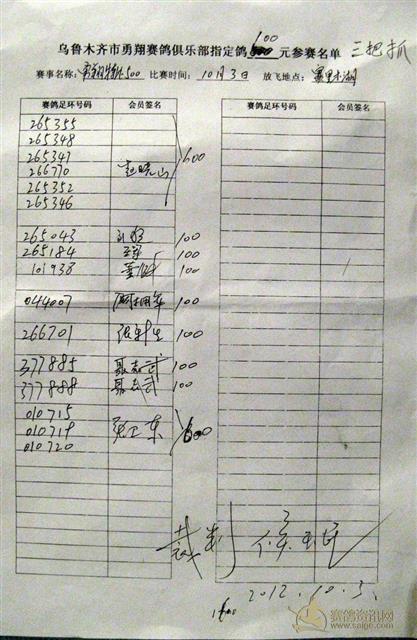 乌鲁木齐市勇翔赛鸽俱乐部指定鸽 100 元参赛名单 三把抓
赛事名称: 500 比赛时间: 10月3日 放飞地点: 赛里木湖
赛鸽足环号码 会员签名 赛鸽足环号码 会员签名
265355
265348
265347 600
266770 赵晓山
265352
265346
265043 100
265184 100
101938 100
044007 100
266701 张新生 100
377885 聂志武 100
377888 聂志武 100
010715
010719 张卫东
010720
裁判
2012.10.3.
赛鸽资讯网
www.saige.com